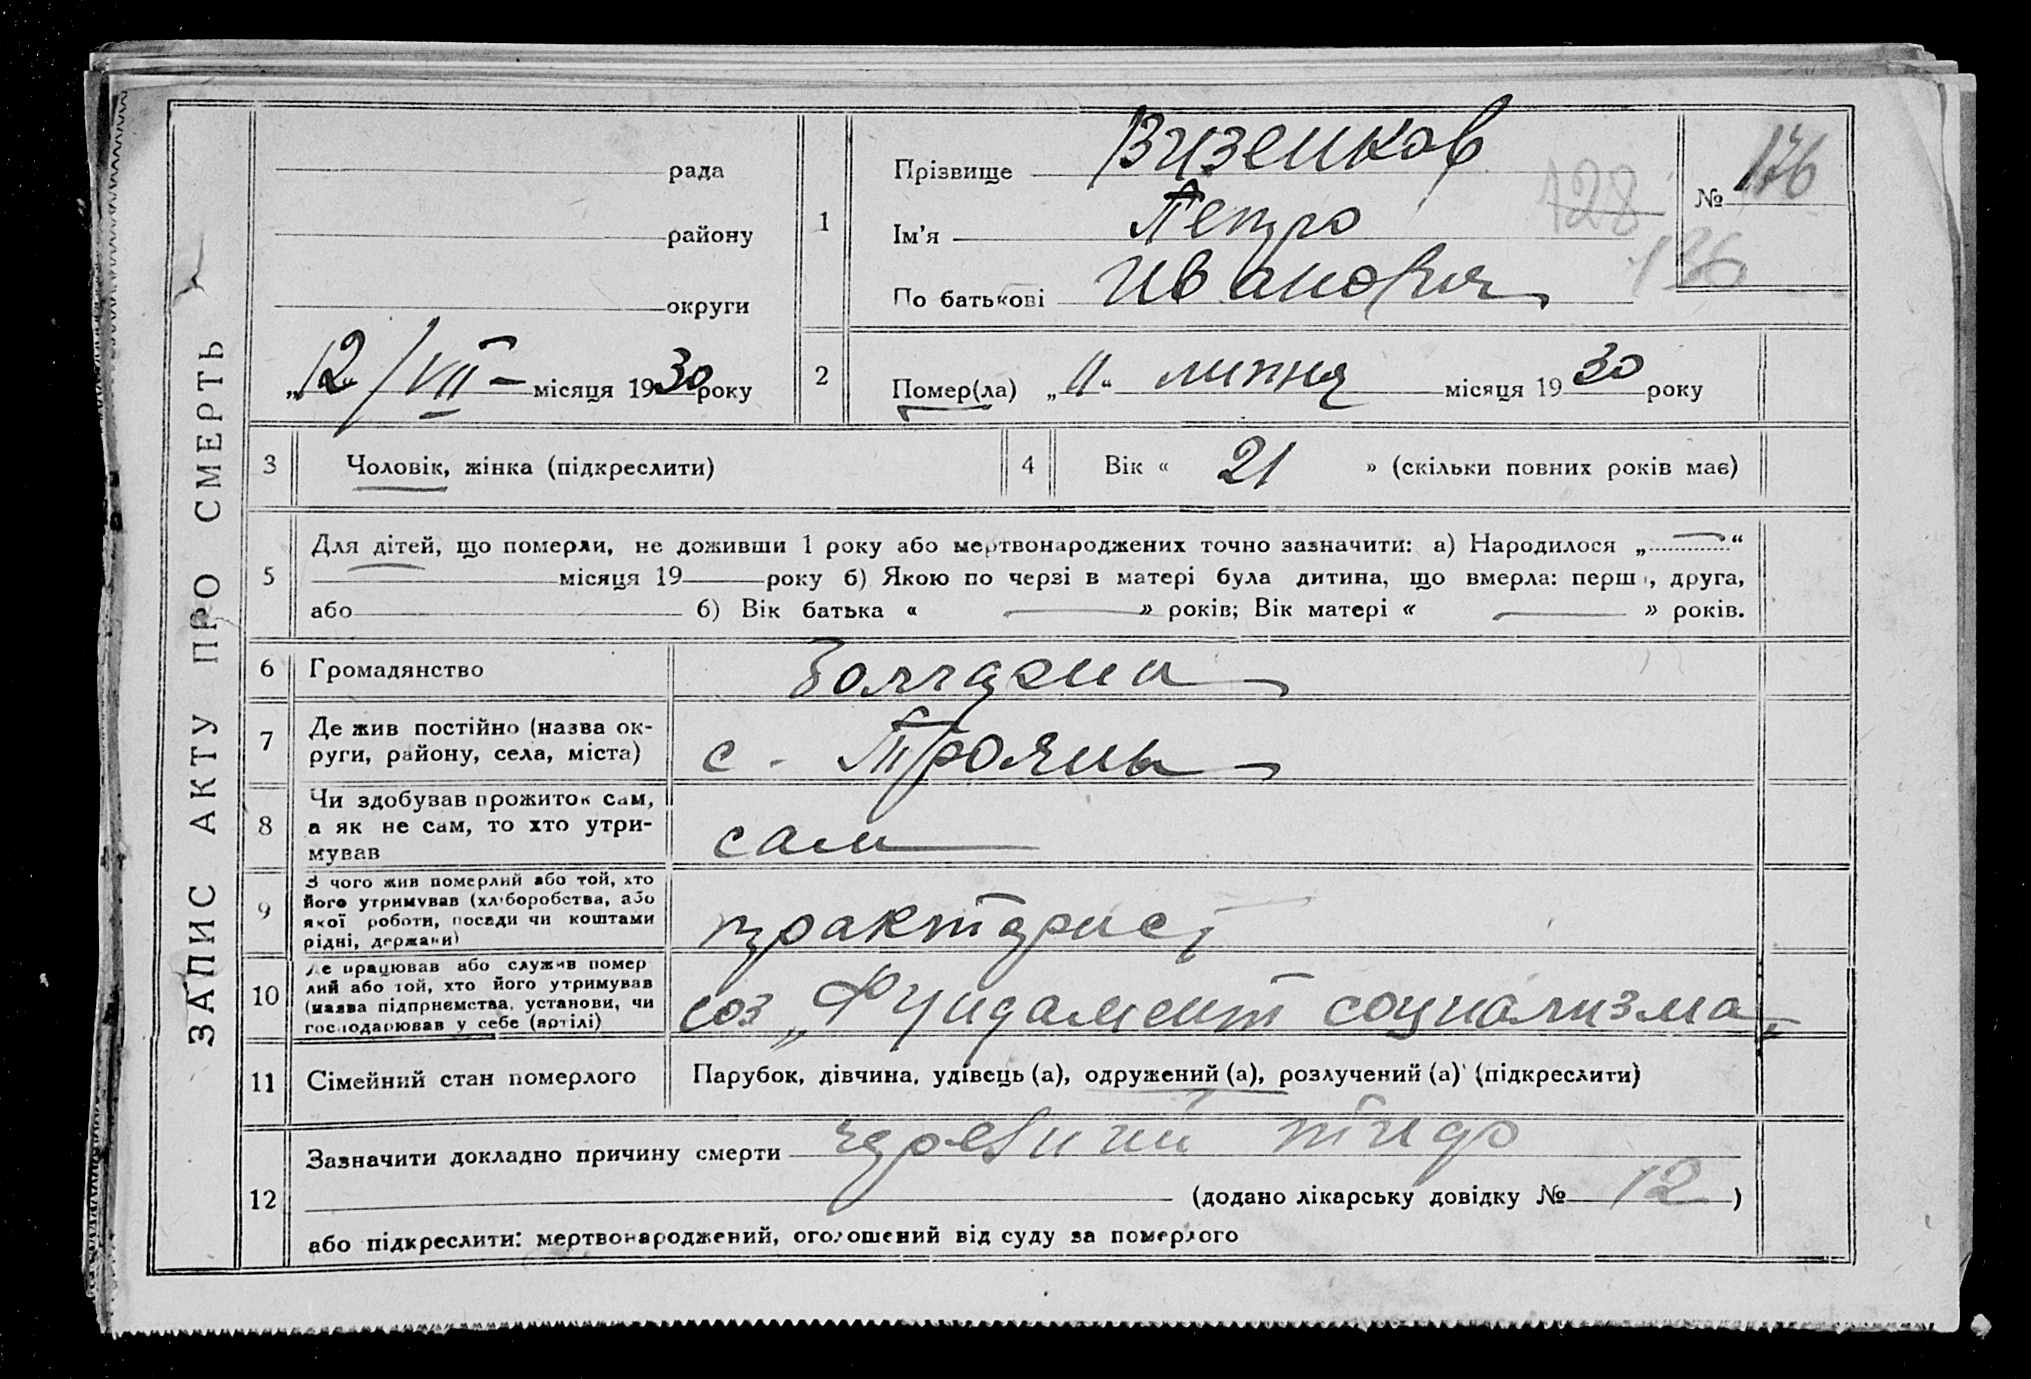 ЗАПИС АКТУ ПРО СМЕРТЬ
рада
району
округи
„12/VII – місяця 1930 року
1
Прізвище Визенков
Ім'я Петро
По батькові Иванович
128
№ 176
136
2
Помер(ла) „11“ липня місяця 1930 року
3 Чоловік, жінка (підкреслити)
4 Вік « 21 » (скільки повних років має)
5
Для дітей, що померли, не доживши 1 року або мертвонароджених точно зазначити: а) Народилося „ “
місяця 19 року б) Якою по черзі в матері була дитина, що вмерла: перша, друга,
або б) Вік батька « » років; Вік матері « » років.
6 Громадянство
7 Де жив постійно (назва ок-
руги, району, села, міста)
с. Трояны
8 Чи здобував прожиток сам,
а як не сам, то хто утри-
мував
сам
9 З чого жив померлий або той, хто
його утримував (хліборобства, або
якої роботи, посади чи коштами
рідні, держави)
10 Де працював або служив помер
лий або той, хто його утримував
(назва підприємства, установи, чи
господарював у себе (артілі)
соз „Фундамент социализма„
11 Сімейний стан померлого
Парубок, дівчина, удівець (а), одружений (а), розлучений (а) (підкреслити)
12 Зазначити докладно причину смерти
(додано лікарську довідку № 12)
або підкреслити: мертвонароджений, оголошений від суду за померлого